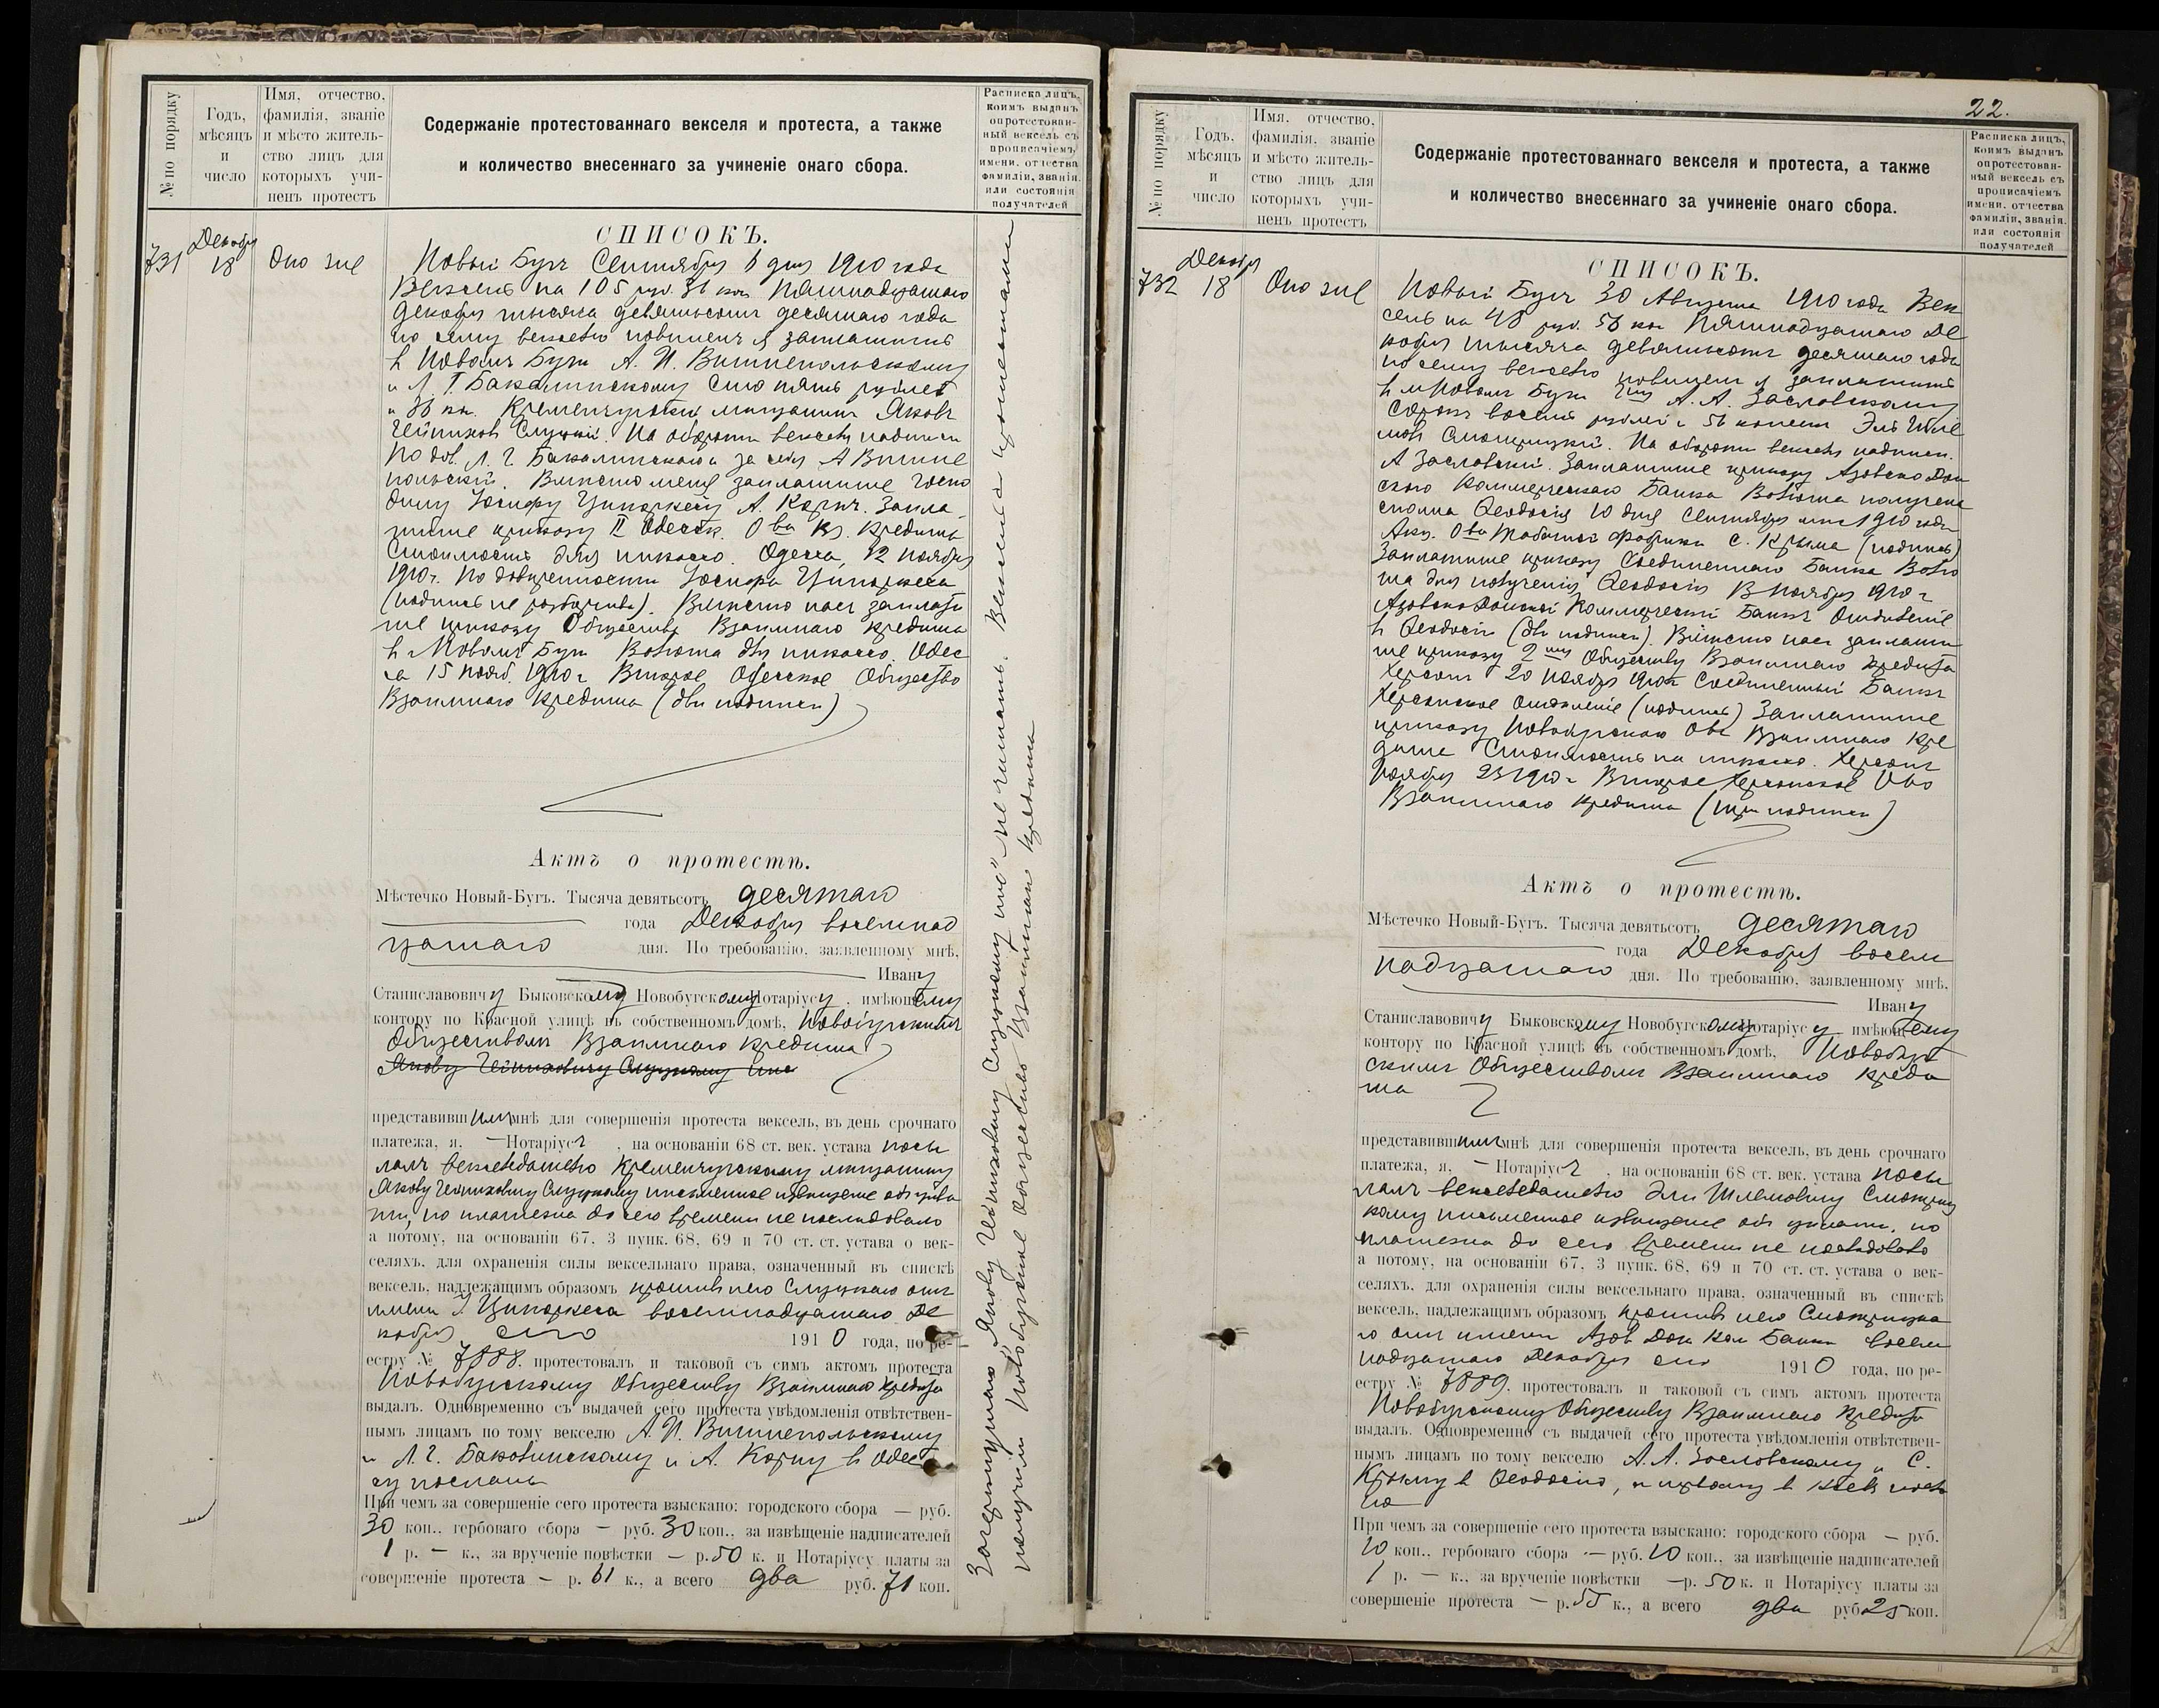 № по порядку
Годъ,
мѣсяцъ
и
число
Имя, отчество,
фамилія, званіе
и мѣсто житель-
ство лицъ для
которыхъ учи-
ненъ протестъ
Содержаніе протестованнаго векселя и протеста, а также
и количество внесеннаго за учиненіе онаго сбора.
Расписка лицъ,
коимъ выданъ
опротестован-
ный вексель съ
прописаніемъ
имени, отчества
фамиліи, званія,
или состоянія
получателей
СПИСОКЪ.
731
Декабря
18
Оно же
Новый Бугъ Сентября 6 дня 1910 года
Вексель на 105 руб. 36 коп. Пятнадцатаго
Декабря тысяча девятьсотъ десятаго года
по сему векселю повиненъ я заплатить
въ Новомъ Бугѣ А. И. Вишнепольскому
и Л. Г. Бакалинскому Сто пять рублей
и 36 коп. Кременчугскій мѣщанинъ Яковъ
Слуцкій. На оборотѣ векселя надписи
По дов. Л. Г. Бакалинскаго и за себя А Вишне
польскій. Вмѣсто меня заплатите Госпо
дину Іосифу Ципоркесу А. Корнъ. Запла
тите приказу II Одесск. О-ва Вз. Кредита
Стоимость для инкассо. Одесса, 12 Ноября
1910 г. По довѣренности Іосифа Ципоркеса
(подпись не разборчива). Вмѣсто насъ заплати
те приказу Общества Взаимнаго Кредита
въ Новомъ Бугѣ Валюта для инкассо. Одес
са 15 Нояб. 1910 г Второе Одесское Общество
Взаимнаго Кредита (двѣ подписи)
Актъ о протестѣ.
Мѣстечко Новый-Бугъ. Тысяча девятьсотъ десятаго
года Декабря восемнад
цатаго дня. По требованію, заявленному мнѣ,
Ивану
Станиславовичу Быковскому Новобугскому Нотаріусу, имѣющему
контору по Красной улицѣ въ собственномъ домѣ, Новобугскимъ
Обществомъ Взаимнаго Кредита
Якову Слуцкому
представившимъ мнѣ для совершенія протеста вексель, въ день срочнаго
платежа, я, — Нотаріусъ, на основаніи 68 ст. век. устава посы
лалъ векселедателю Кременчугскому мѣщанину
Якову Слуцкому письменное извѣщеніе объ упла
тѣ, но платежа до сего времени не послѣдовало
а потому, на основаніи 67, 3 пунк. 68, 69 и 70 ст. ст. устава о век-
селяхъ, для охраненія силы вексельнаго права, означенный въ спискѣ
вексель, надлежащимъ образомъ противъ него Слуцкаго отъ
имени І. Ципоркеса восемнадцатаго Де
кабря сего 1910 года, по ре-
естру № 7888. протестовалъ и таковой съ симъ актомъ протеста
Новобугскому Обществу Взаимнаго Кредита
выдалъ. Одновременно съ выдачей сего протеста увѣдомленія отвѣтствен-
нымъ лицамъ по тому векселю А. И. Вишнепольскому
и Л. Г. Бакалинскому и А. Корну въ Одес
су посланы
При чемъ за совершеніе сего протеста взыскано: городского сбора — руб.
30 коп., гербоваго сбора — руб. 30 коп., за извѣщеніе надписателей
1 р. — к., за врученіе повѣстки — р. 50 к. и Нотаріусу платы за
совершеніе протеста — р. 61 к., а всего два руб. 71 коп.
Зачеркнутаго „Якову Слуцкому не читать. Вексель съ протестомъ
получилъ Новобугское Общество Взаимнаго Кредита
22.
№ по порядку
Годъ,
мѣсяцъ
и
число
Имя, отчество,
фамилія, званіе
и мѣсто житель-
ство лицъ для
которыхъ учи-
ненъ протестъ
Содержаніе протестованнаго векселя и протеста, а также
и количество внесеннаго за учиненіе онаго сбора.
Расписка лицъ,
коимъ выданъ
опротестован-
ный вексель съ
прописаніемъ
имени, отчества
фамиліи, званія,
или состоянія
получателей
СПИСОКЪ.
732
Декабря
18
Оно же
Новый Бугъ 30 Августа 1910 года Век
сель на 48 руб. 56 коп Пятнадцатаго Де
кабря тысяча девятьсотъ десятаго года
по сему векселю повиненъ я заплатить
въ м Новомъ Бугѣ А. А. Засловскому
Сорокъ восемь рублей и 56 копеекъ Эль Шле
мовъ Смотрицкій. На оборотѣ векселя надписи.
А Засловскій. Заплатите приказу Азовско Дон
ского Коммерческаго Банка Валюта получена
Ѳеодосія 10 дня Сентября 1910 года
Акц. О-ва Табачной Фабрики С. Крыма (подпись)
Заплатите приказу Соединеннаго Банка Валю
та для полученія Ѳеодосія Ноября 1910 г
Азовско Донской Коммерческій Банкъ Отдѣленіе
въ Ѳеодосіи (двѣ подписи). Вмѣсто насъ заплати
те приказу 2му Обществу Взаимнаго Кредита
Херсонъ 20 Ноября 1910 г Соединенный Банкъ
Херсонское Отдѣленіе (подпись) Заплатите
приказу Новобугскаго Ова Взаимнаго Кре
дита Стоимость на инкассо. Херсонъ
Ноября 23 1910 г Второе Херсонское Ово
Взаимнаго Кредита (три подписи)
Актъ о протестѣ.
Мѣстечко Новый-Бугъ. Тысяча девятьсотъ десятаго
года Декабря восем
надцатаго дня. По требованію, заявленному мнѣ,
Ивану
Станиславовичу Быковскому Новобугскому Нотаріусу, имѣющему
контору по Красной улицѣ въ собственномъ домѣ, Новобуг
скимъ Обществомъ Взаимнаго Креди
та
представившимъ мнѣ для совершенія протеста вексель, въ день срочнаго
платежа, я, — Нотаріусъ, на основаніи 68 ст. век. устава посы
лалъ векселедателю Эли Шлемовичу Смотриц
кому письменное извѣщеніе объ уплатѣ, но
платежа до сего времени не послѣдовало
а потому, на основаніи 67, 3 пунк. 68, 69 и 70 ст. ст. устава о век-
селяхъ, для охраненія силы вексельнаго права, означенный въ спискѣ
вексель, надлежащимъ образомъ противъ него Смотрицка
го отъ имени Азов Дон Ком Банка восем
надцатаго Декабря сего 1910 года, по ре-
естру № 7889. протестовалъ и таковой съ симъ актомъ протеста
Новобугскому Обществу Взаимнаго Кредита
выдалъ. Одновременно съ выдачей сего протеста увѣдомленія отвѣтствен-
нымъ лицамъ по тому векселю А. А. Засловскому и С.
Крыму въ Ѳеодосію, и первому въ Кіевъ посла
но
При чемъ за совершеніе сего протеста взыскано: городского сбора — руб.
10 коп., гербоваго сбора — руб. 10 коп., за извѣщеніе надписателей
1 р. — к., за врученіе повѣстки — р. 50 к. и Нотаріусу платы за
совершеніе протеста — р. 55 к., а всего два руб 25 коп.